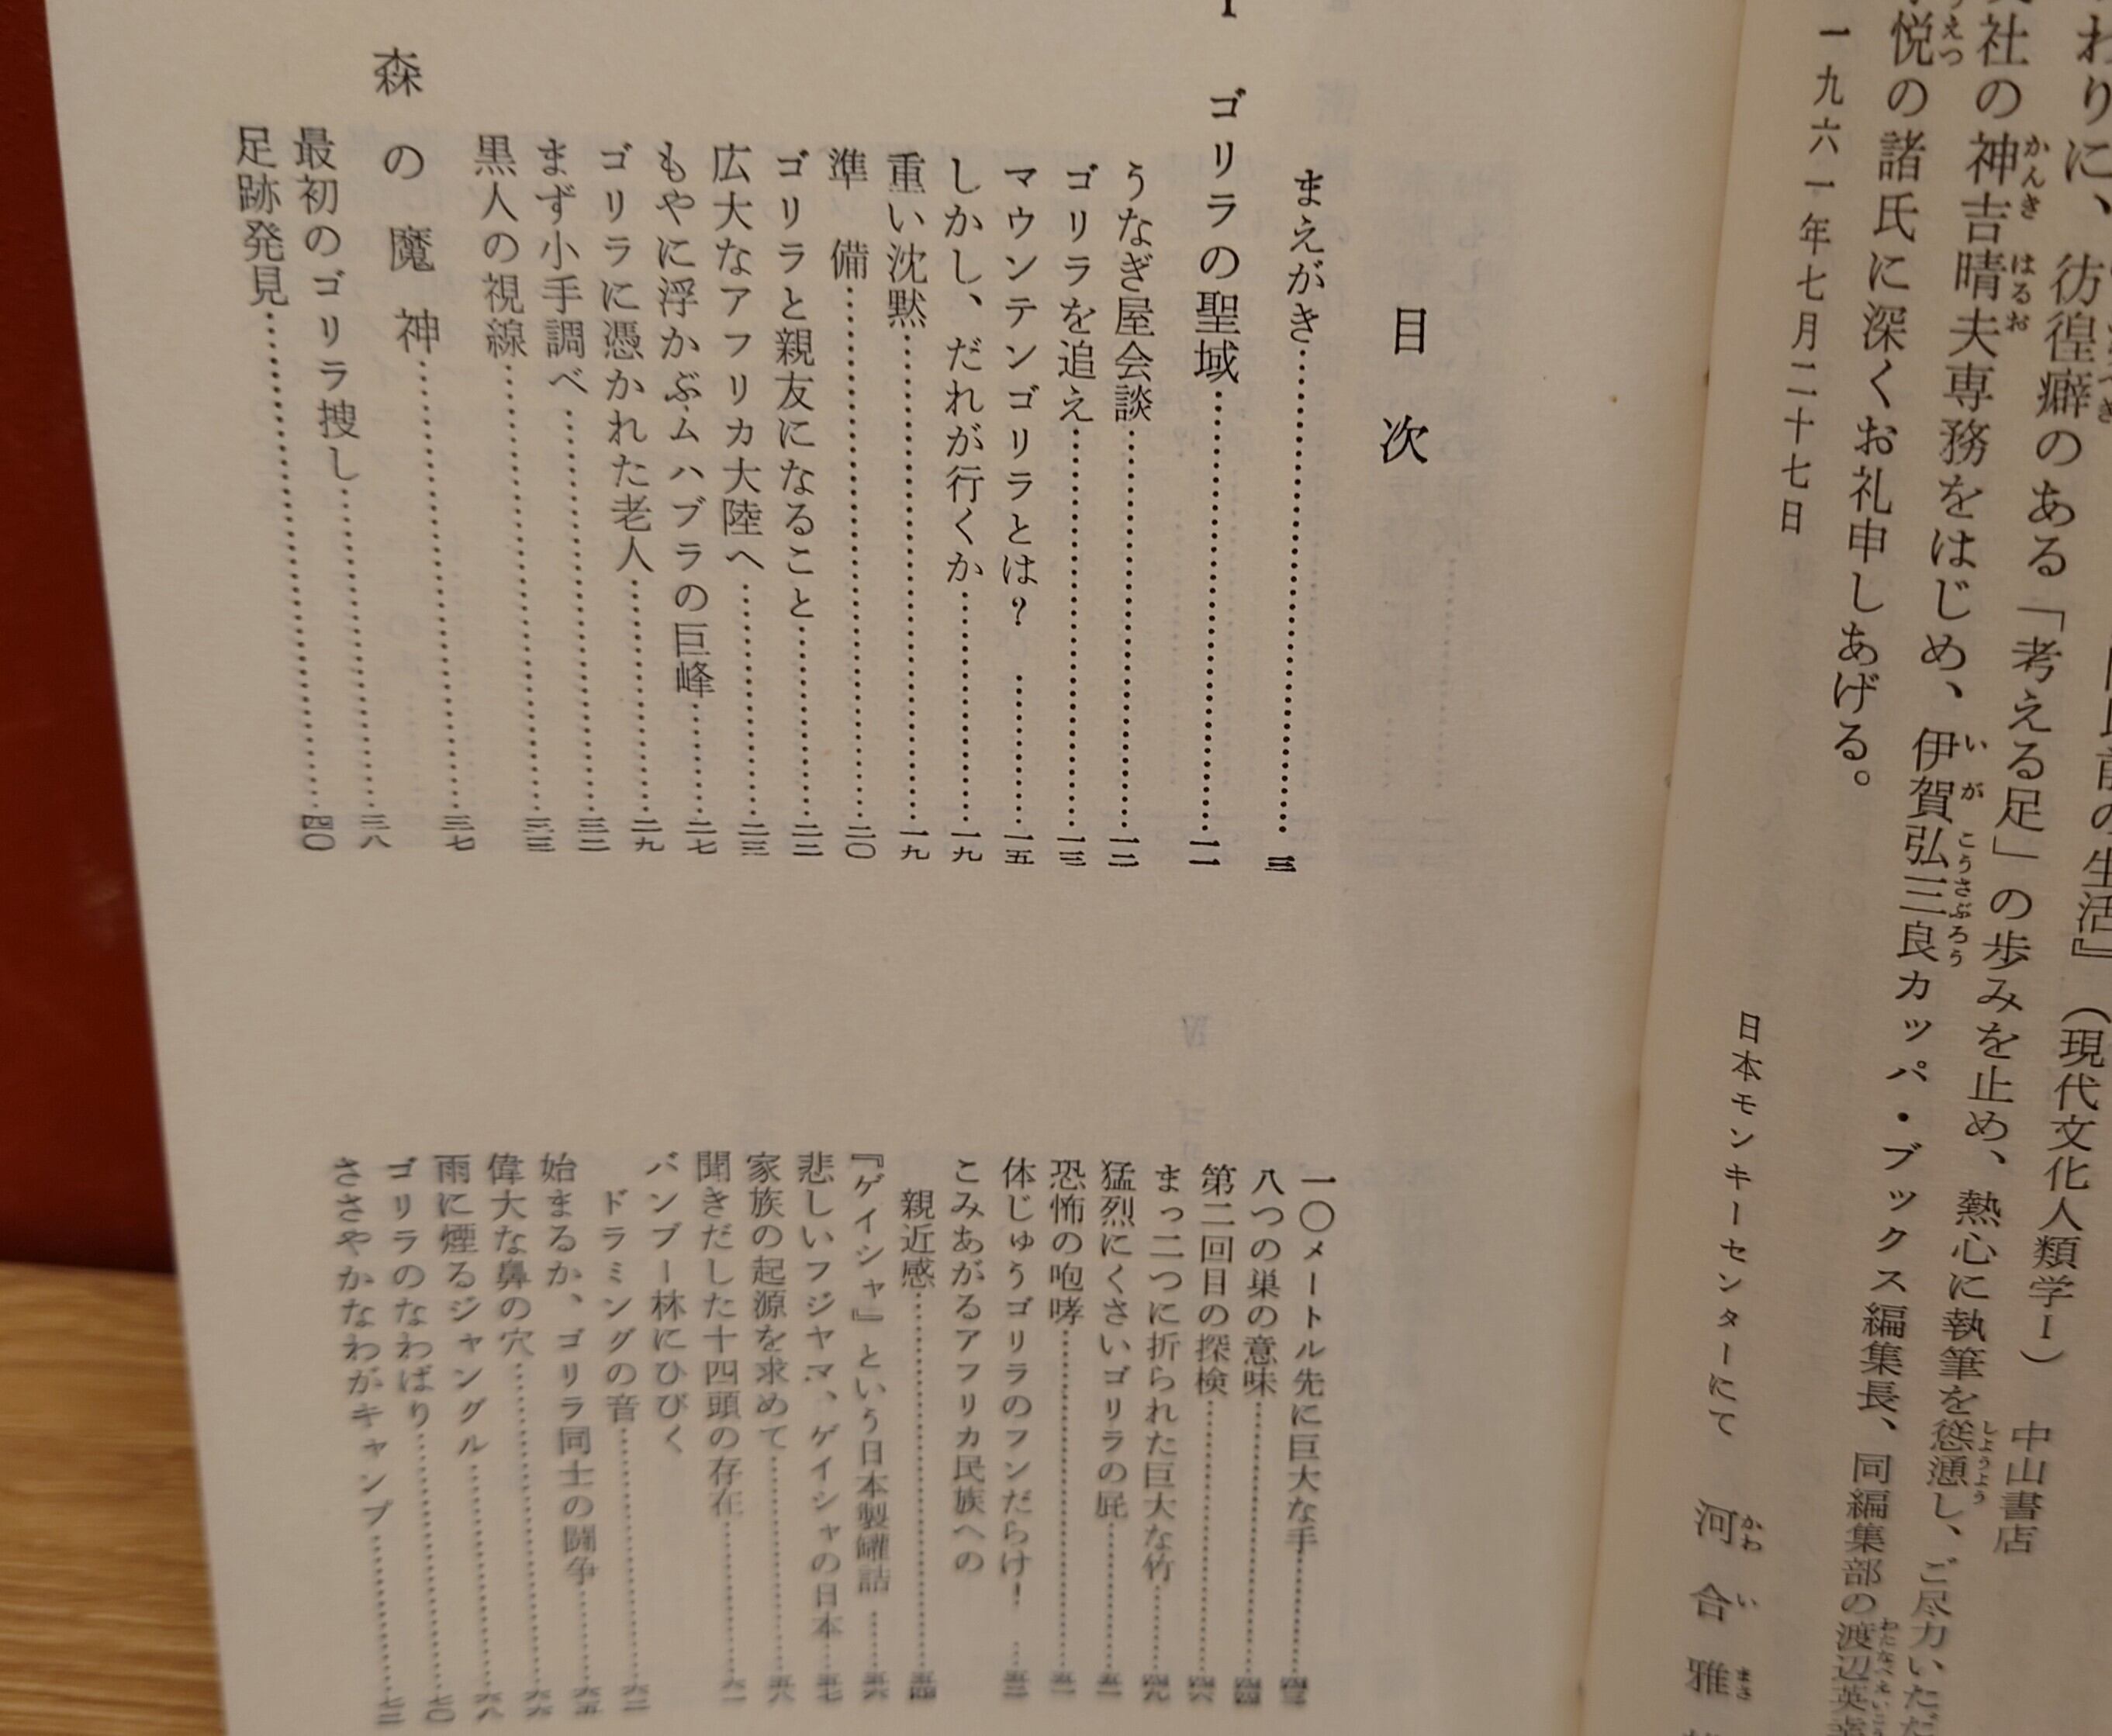 わりに、彷徨癖のある「考える足」の歩みを止め、熱心に執筆を慫慂し、ご尽力いただ
社の神吉晴夫専務をはじめ、伊賀弘三良カッパ・ブックス編集長、同編集部の渡辺英
悦の諸氏に深くお礼申しあげる。
前の生活』（現代文化人類学Ⅰ） 中山書店
一九六一年七月二十七日
日本モンキーセンターにて 河合雅
目次
まえがき……三
Ⅰ ゴリラの聖域……一一
うなぎ屋会談……一二
ゴリラを追え……一三
マウンテンゴリラとは？……一五
しかし、だれが行くか……一九
重い沈黙……一九
準備……二〇
ゴリラと親友になること……二二
広大なアフリカ大陸へ……二三
もやに浮かぶムハブラの巨峰……二七
ゴリラに憑かれた老人……二九
まず小手調べ……三二
黒人の視線……三三
森の魔神……三七
最初のゴリラ捜し……三八
足跡発見……四〇
一〇メートル先に巨大な手……四三
八つの巣の意味……四四
第二回目の探検……四六
まっ二つに折られた巨大な竹……四九
猛烈にくさいゴリラの屁……五一
恐怖の咆哮……五一
体じゅうゴリラのフンだらけ！……五三
こみあがるアフリカ民族への
親近感……五四
『ゲイシャ』という日本製罐詰……五六
悲しいフジヤマ、ゲイシャの日本……五七
家族の起源を求めて……五八
聞きだした十四頭の存在……六一
バンブー林にひびく
ドラミングの音……六二
始まるか、ゴリラ同士の闘争……六五
偉大な鼻の穴……六六
雨に煙るジャングル……六八
ゴリラのなわばり……七〇
ささやかなわがキャンプ……七二